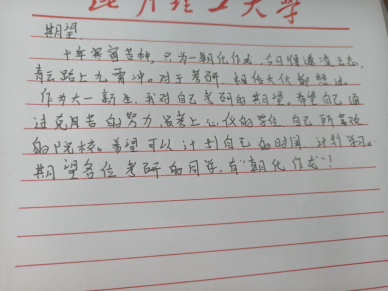 昆明理工大学
期望
十年寒窗苦读,只为一朝化作龙,今only遂凌云志,
青云路上九霄冲。对于考研,相信大伙都想过。
作为大一新生,我对自己考研的期望,希望自己通
过克日苦的努力,考上心仪的学位,自己所喜欢
的院校。希望可以计划自己的时间,计划学习。
期望各位考研的同学,有“朝化作龙”!